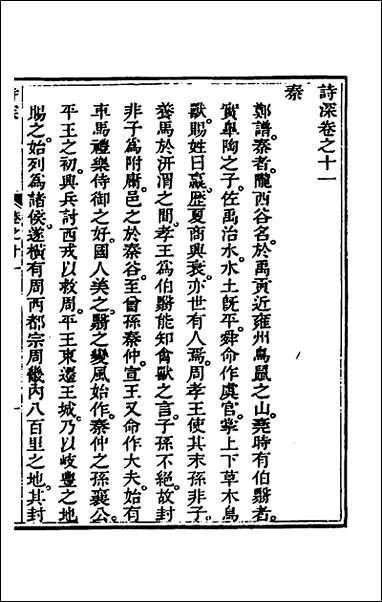 詩深卷之十一
秦
鄭譜秦者隴西谷名於禹貢近雍州鳥鼠之山堯時有伯翳者
實臯陶之子佐禹治水水土旣平舜命作虞官掌上下草木鳥
獸賜姓曰嬴歷夏商興衰亦世有人焉周孝王使其末孫非子
養馬於汧渭之間孝王爲伯翳能知禽獸之言子孫不絕故封
非子爲附庸邑之於秦谷至曾孫秦仲宣王又命作大夫始有
車馬禮樂侍御之好國人美之翳之變風始作秦仲之孫襄公
平王之初興兵討西戎以救周平王東遷王城乃以岐豐之地
賜之始列爲諸侯遂橫有周西都宗周畿內八百里之地其封